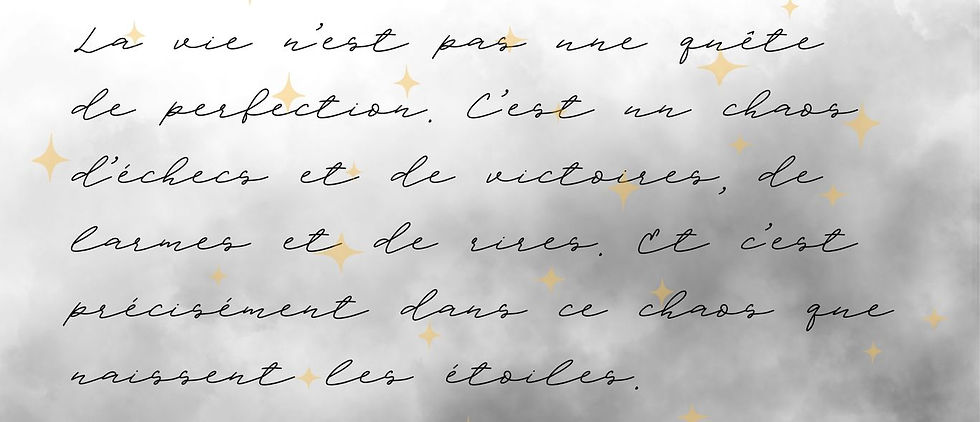 La vie n'est pas une quête
de perfection. C'est un chaos
d'échecs et de victoires, de
larmes et de rires. Et c'est
précisément dans ce chaos que
naissent les étoiles.